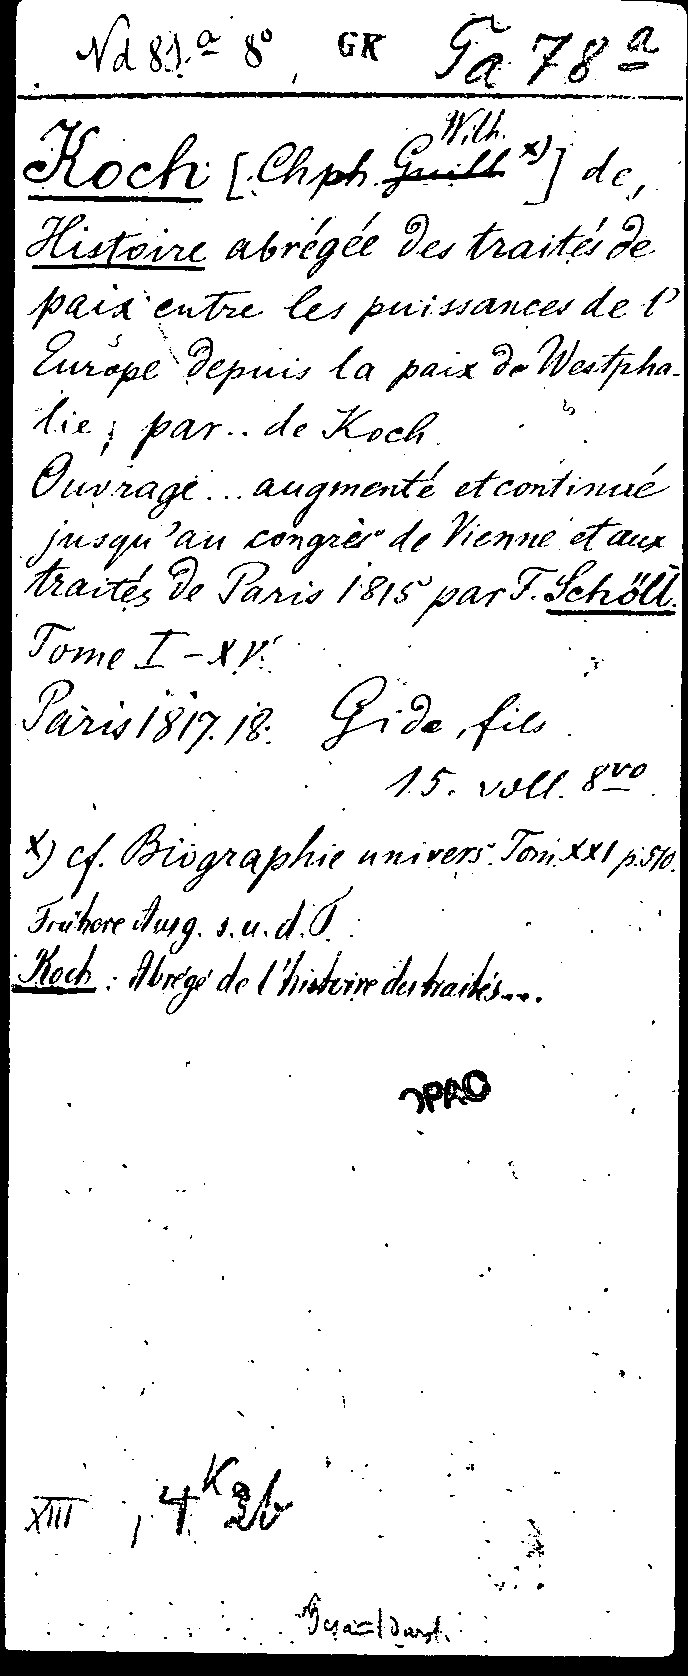 Nd 81.a 8°, GK Ta 78 a
Koch [Chph Guill Wilh. x)] de,
Histoire abrégée des traités de
paix entre les puissances de l'
Europe depuis la paix de Westpha-
lie, par .. de Koch.
Ouvrage ... augmenté et continué
jusqu'au congrès de Vienne et aux
traités de Paris 1815 par F. Schöll.
Tome I - XV.
Paris 1817. 18. Gide, fils.
15. voll. 8vo
x) cf. Biographie univers. Tom. XXI p. 510.
Frühere Ausg. s. u. d. T.
Koch: Abrégé de l'histoire des traités...
XIII, 4 K